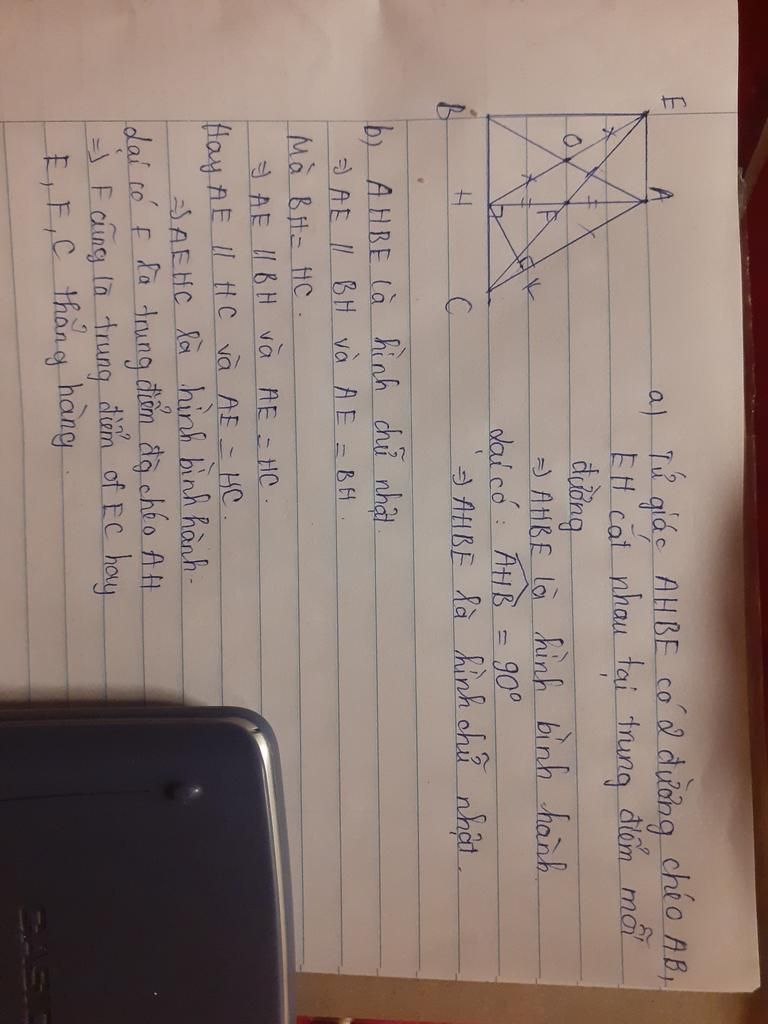 E
A
O
F
K
B
H
C
a) Tứ giác AHBE có 2 đường chéo AB,
EH cắt nhau tại trung điểm mỗi
đường
=) AHBE là hình bình hành
Lại có: AHB = 90°
=) AHBE là hình chữ nhật.
b) AHBE là hình chữ nhật.
=) AE // BH và AE = BH.
Mà BH = HC.
=) AE // BH và AE = HC.
Hay AE // HC và AE = HC.
=) AEHC là hình bình hành.
Lại có F là trung điểm đg chéo AH
=) F cũng là trung điểm of EC hay
E, F, C thẳng hàng.